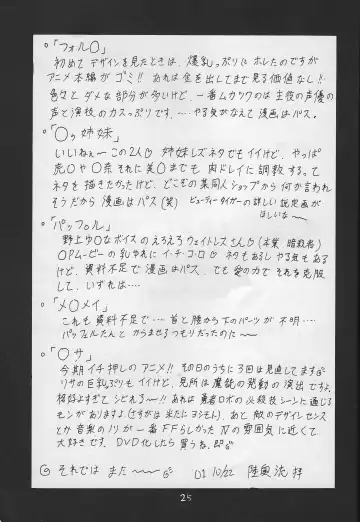 ◦「フォル〇」
初めてデザインを見たときは、爆乳っぷりにホレたのですが
アニメ本編がゴミ!! あれは金を出してまで見る価値なし!!
色々とダメな部分が多いけど、一番ムカツクのは主役の声優の
声と演技のカスっぷりです、… やる気がなえて漫画はパス。
◦「〇ッ姉妹」
いいねぇ〜この2人♡ 姉妹レズネタでもイイけど、やっぱ
虎〇や〇奈それに美〇までも 肉ドレイに調教する。って
ネタを描きたかったけど、どこぞの某同人ショップから何か言われ
そうだから漫画はパス(笑) ビューティータイガーの詳しい設定画が
ほしいな〜
◦「パッフル」
野上ゆ〇なボイスのえろえろウェイトレスさん♡(本業 暗殺者)
OPムービーの乳ゆれにイ・チ・コ・ロ♡ ネタもあるしやる気もある
けど、資料不足で漫画はパス、でも愛の力でそれを克服
して、いずれは……
◦「メ〇メイ」
これも資料不足で…… 首と腰から下のパーツが不明……
パッフルたんとからませるつもりだったのに〜
◦「〇サ」
今期イチ押しのアニメ!! その日のうちに3回は見直してます
リサの巨乳っぷりもイイけど、見所は魔銃の発動の演出ですよ
格好よすぎてシビれる〜!! あれは勇者ロボの必殺技シーンに通じる
モンがありますよ(さすがは米たにヨシもん)。あと敵のデザインセンス
とか音楽のノリが一番FFらしかったⅣの雰囲気に近くて
大好きです。DVD化したら買うね、即
それでは また〜〜 01 10/22 陸奥 流 拝
25